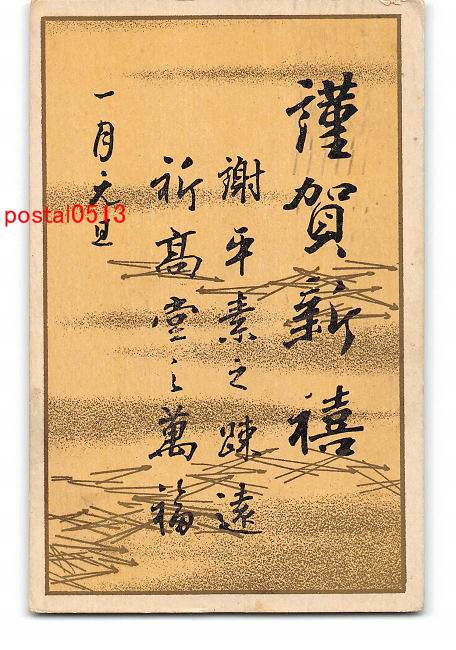 謹賀新禧
謝平素之疎遠
祈高堂之萬福
一月元旦
postal0513